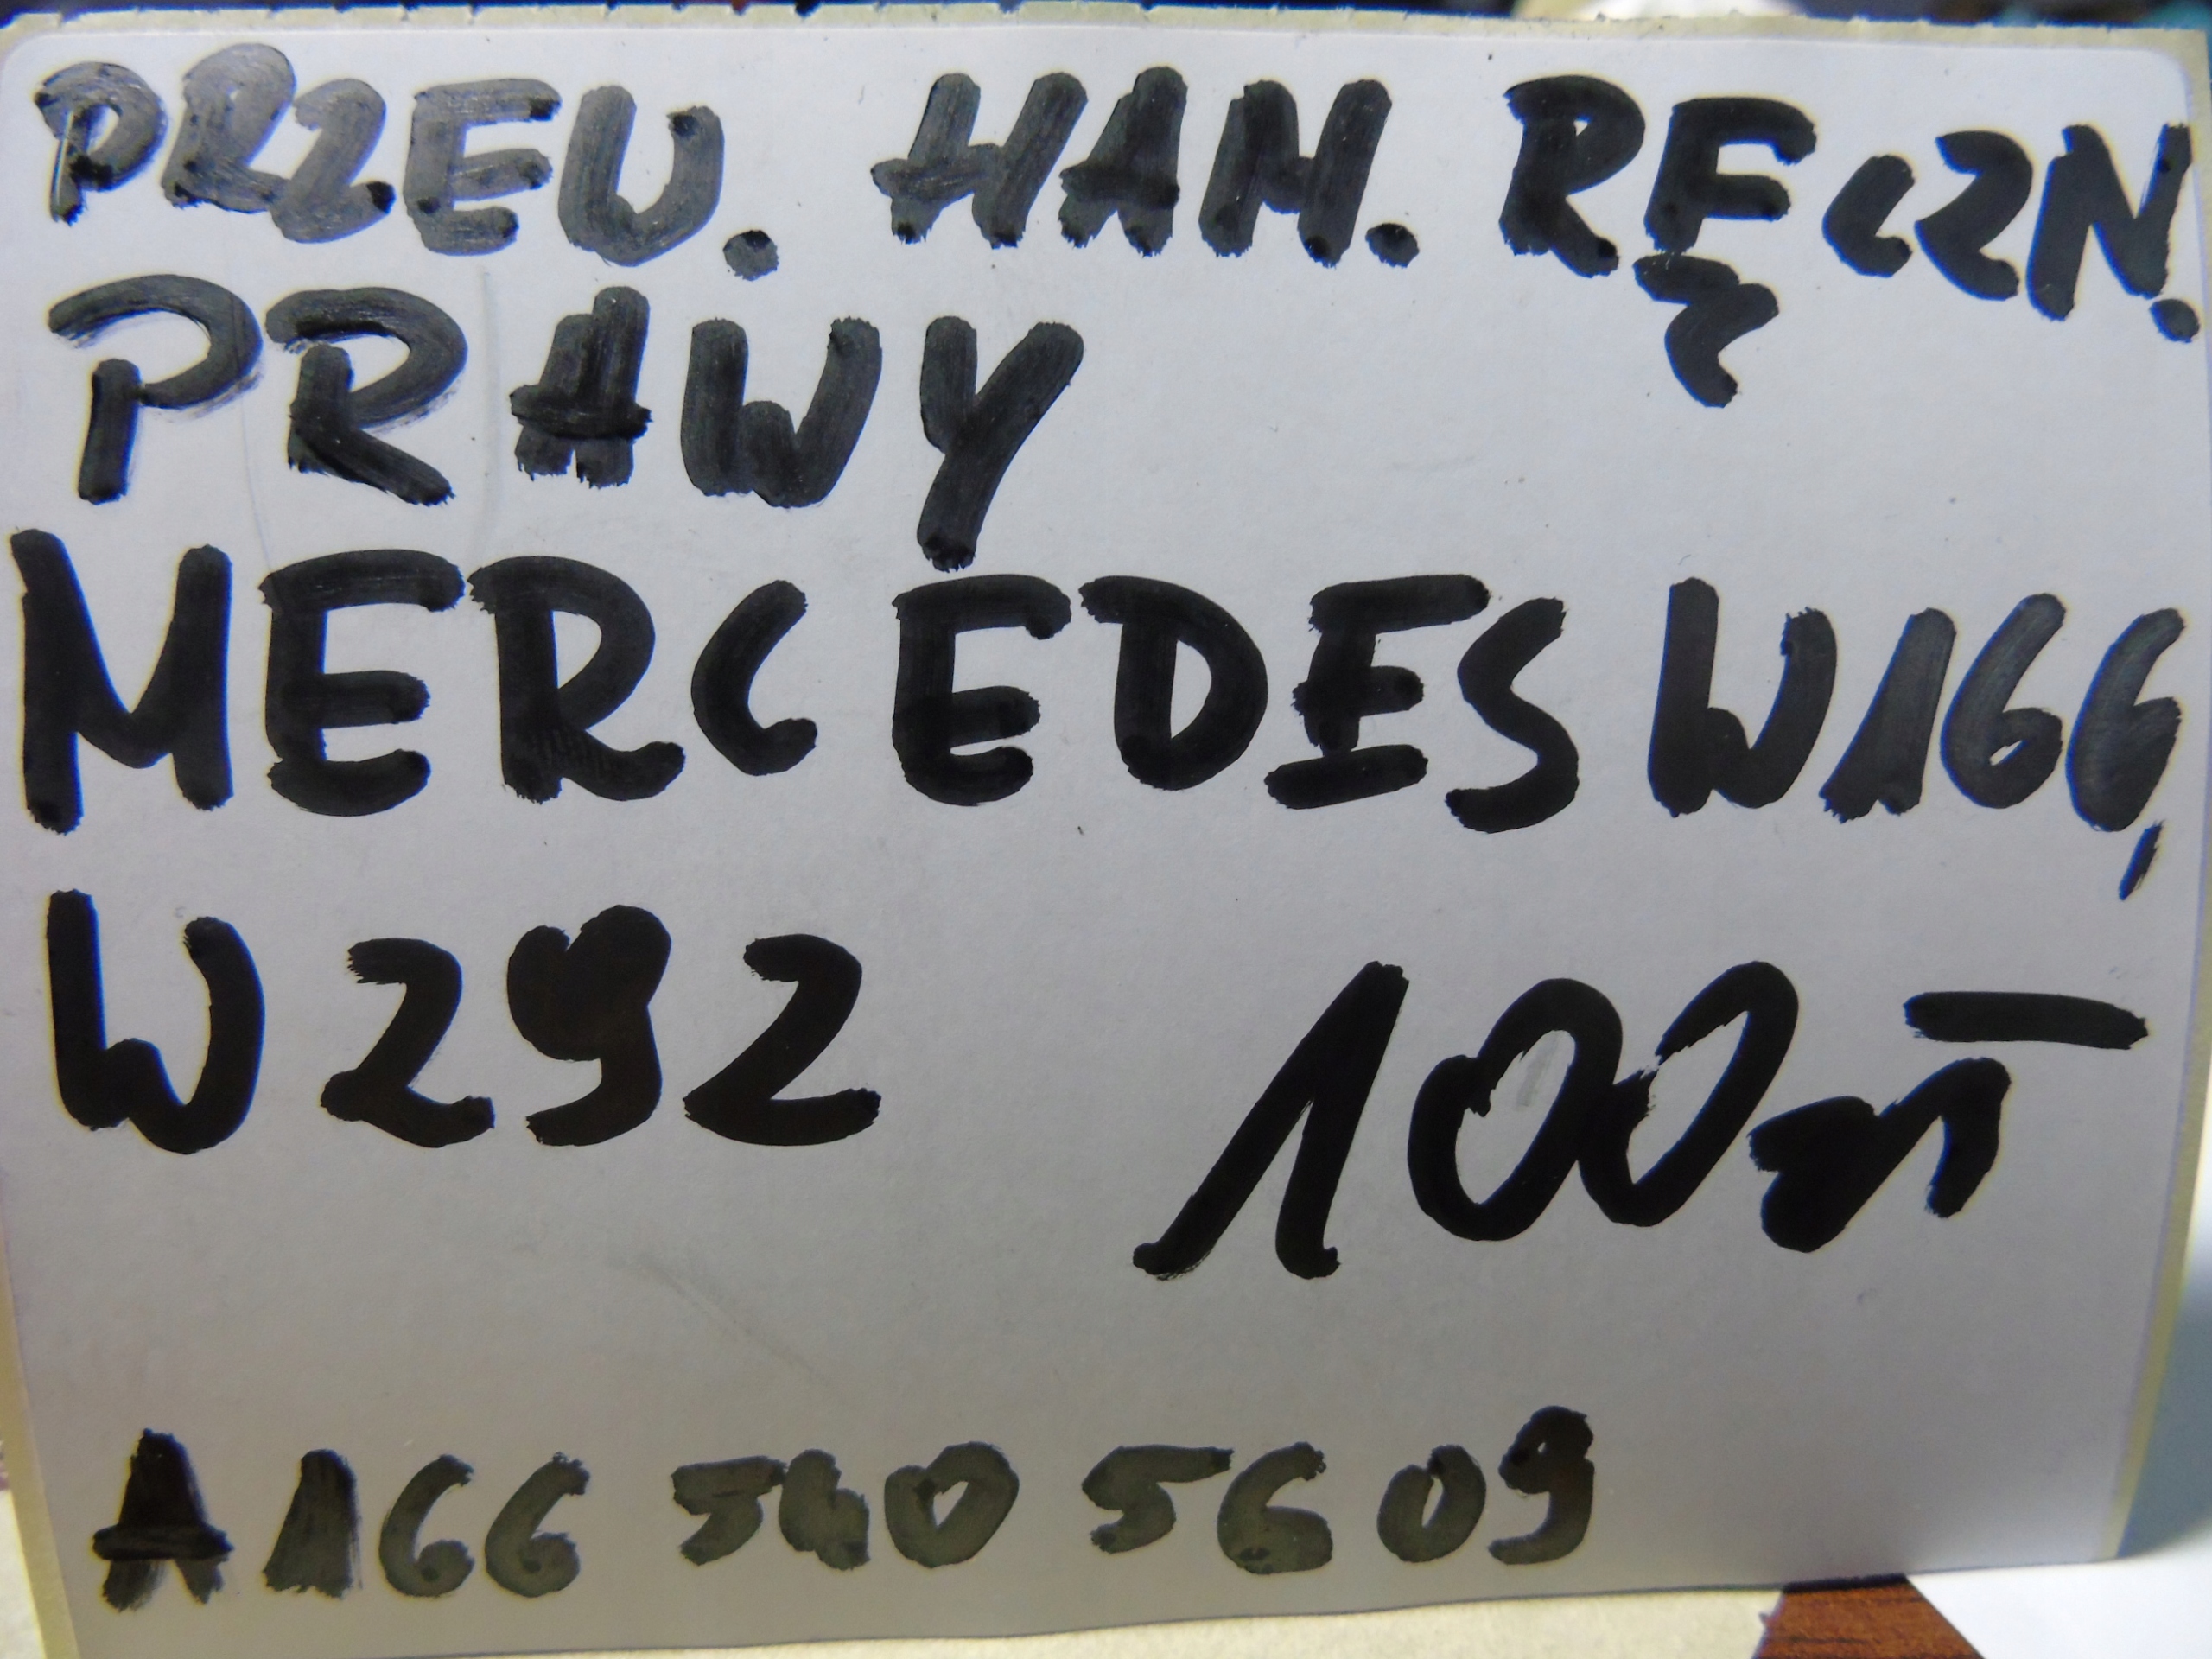 PRZEW. HAM. RĘCZN.
PRAWY
MERCEDES W166,
W292 100zł
A166 540 56 09